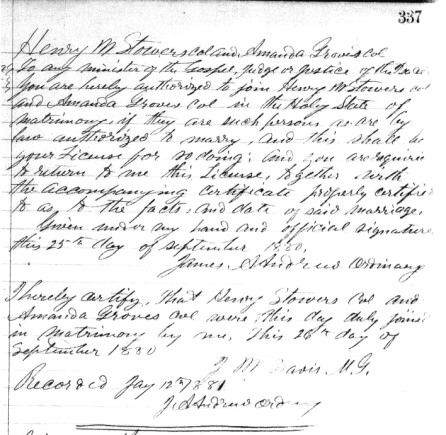 337
Henry M Stowers col and Amanda Groves col
To any minister of the Gospel, Judge or Justice of the Peace
You are hereby authorized to join Henry M Stowers col
and Amanda Groves col in the Holy State of
matrimony if they are such persons as are by
law authorized to marry, and this shall be
your License for so doing; and you are required
to return to me this License, together with
the accompanying certificate properly certified
to as to the facts, and date of said marriage.
Given under my hand and official signature
this 25th day of september 1880.
James A Andrew Ordinary
I hereby certify, That Henry Stowers Col and
Amanda Groves col were this day duly joined
in matrimony by me. This 26th day of
September 1880
J M Davis M.G.
Recorded Jany 12th 1881
J. A Andrew Ordiny